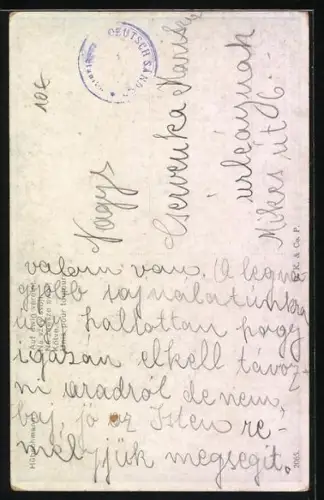 DEUTSCH SAND
104
Nagys
Cservenka Mariska
úrleánynak
Mikes út 6.
valam van. A legna
gyobb sajnálatunkra
hallottam hogy
igazán elkell távoz-
ni aradról de nem
baj, jó az Isten re-
méljük megsegit.
Auf ewig verein
B.K. & Co. P.
2065.